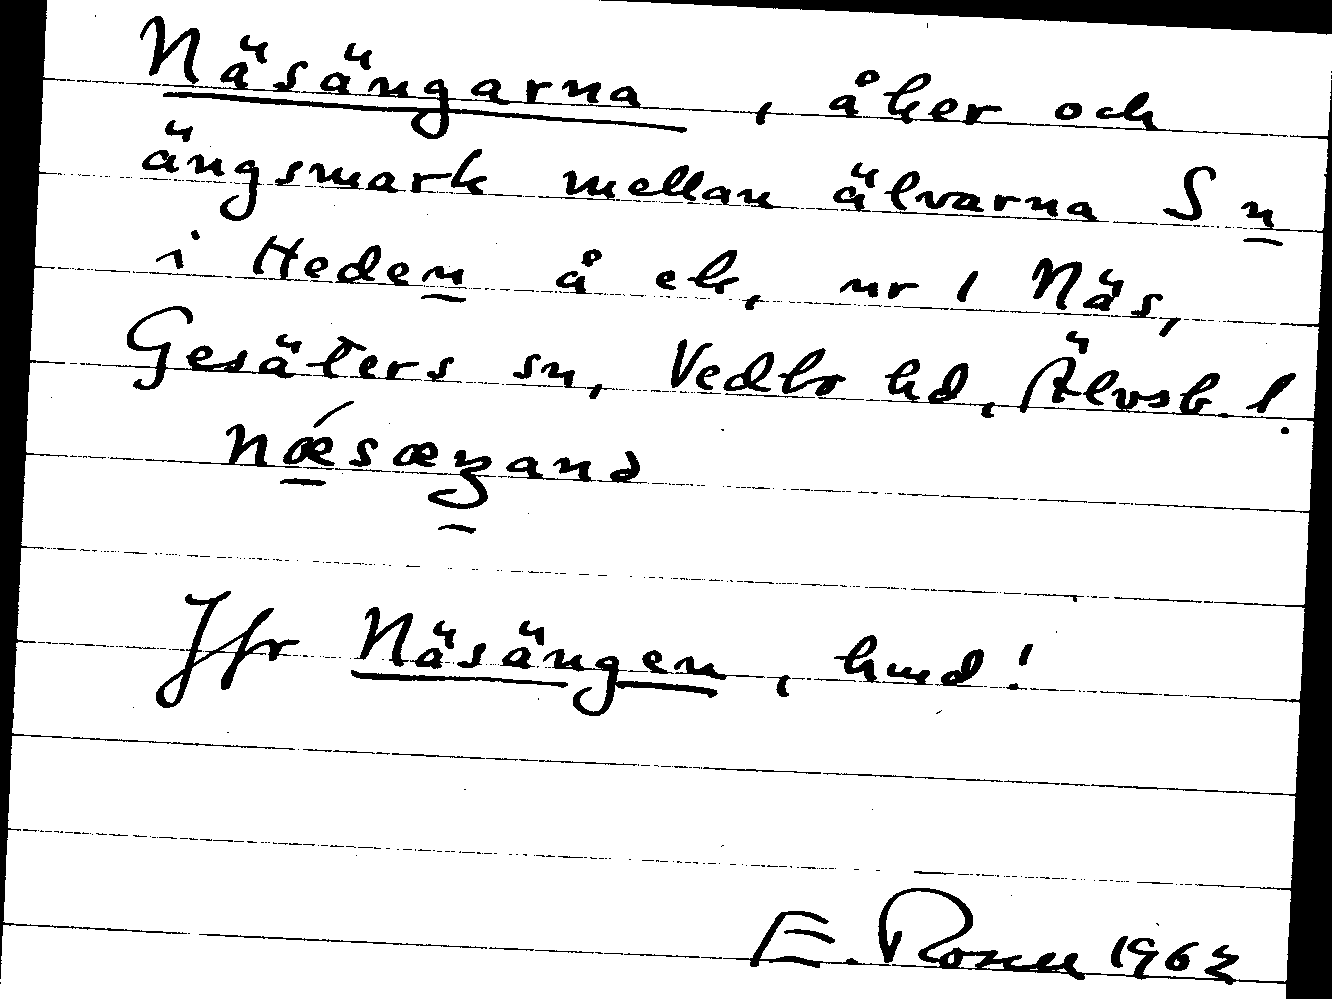 Näsängarna, åker och
ängsmark mellan älvarna S n
i Heden å ek, nr 1 Näs,
Gesäters sn, Vedbo hd, Älvsb. l.
næ´sæŋanə
Jfr Näsängen, hmd!
E. Rosen 1962